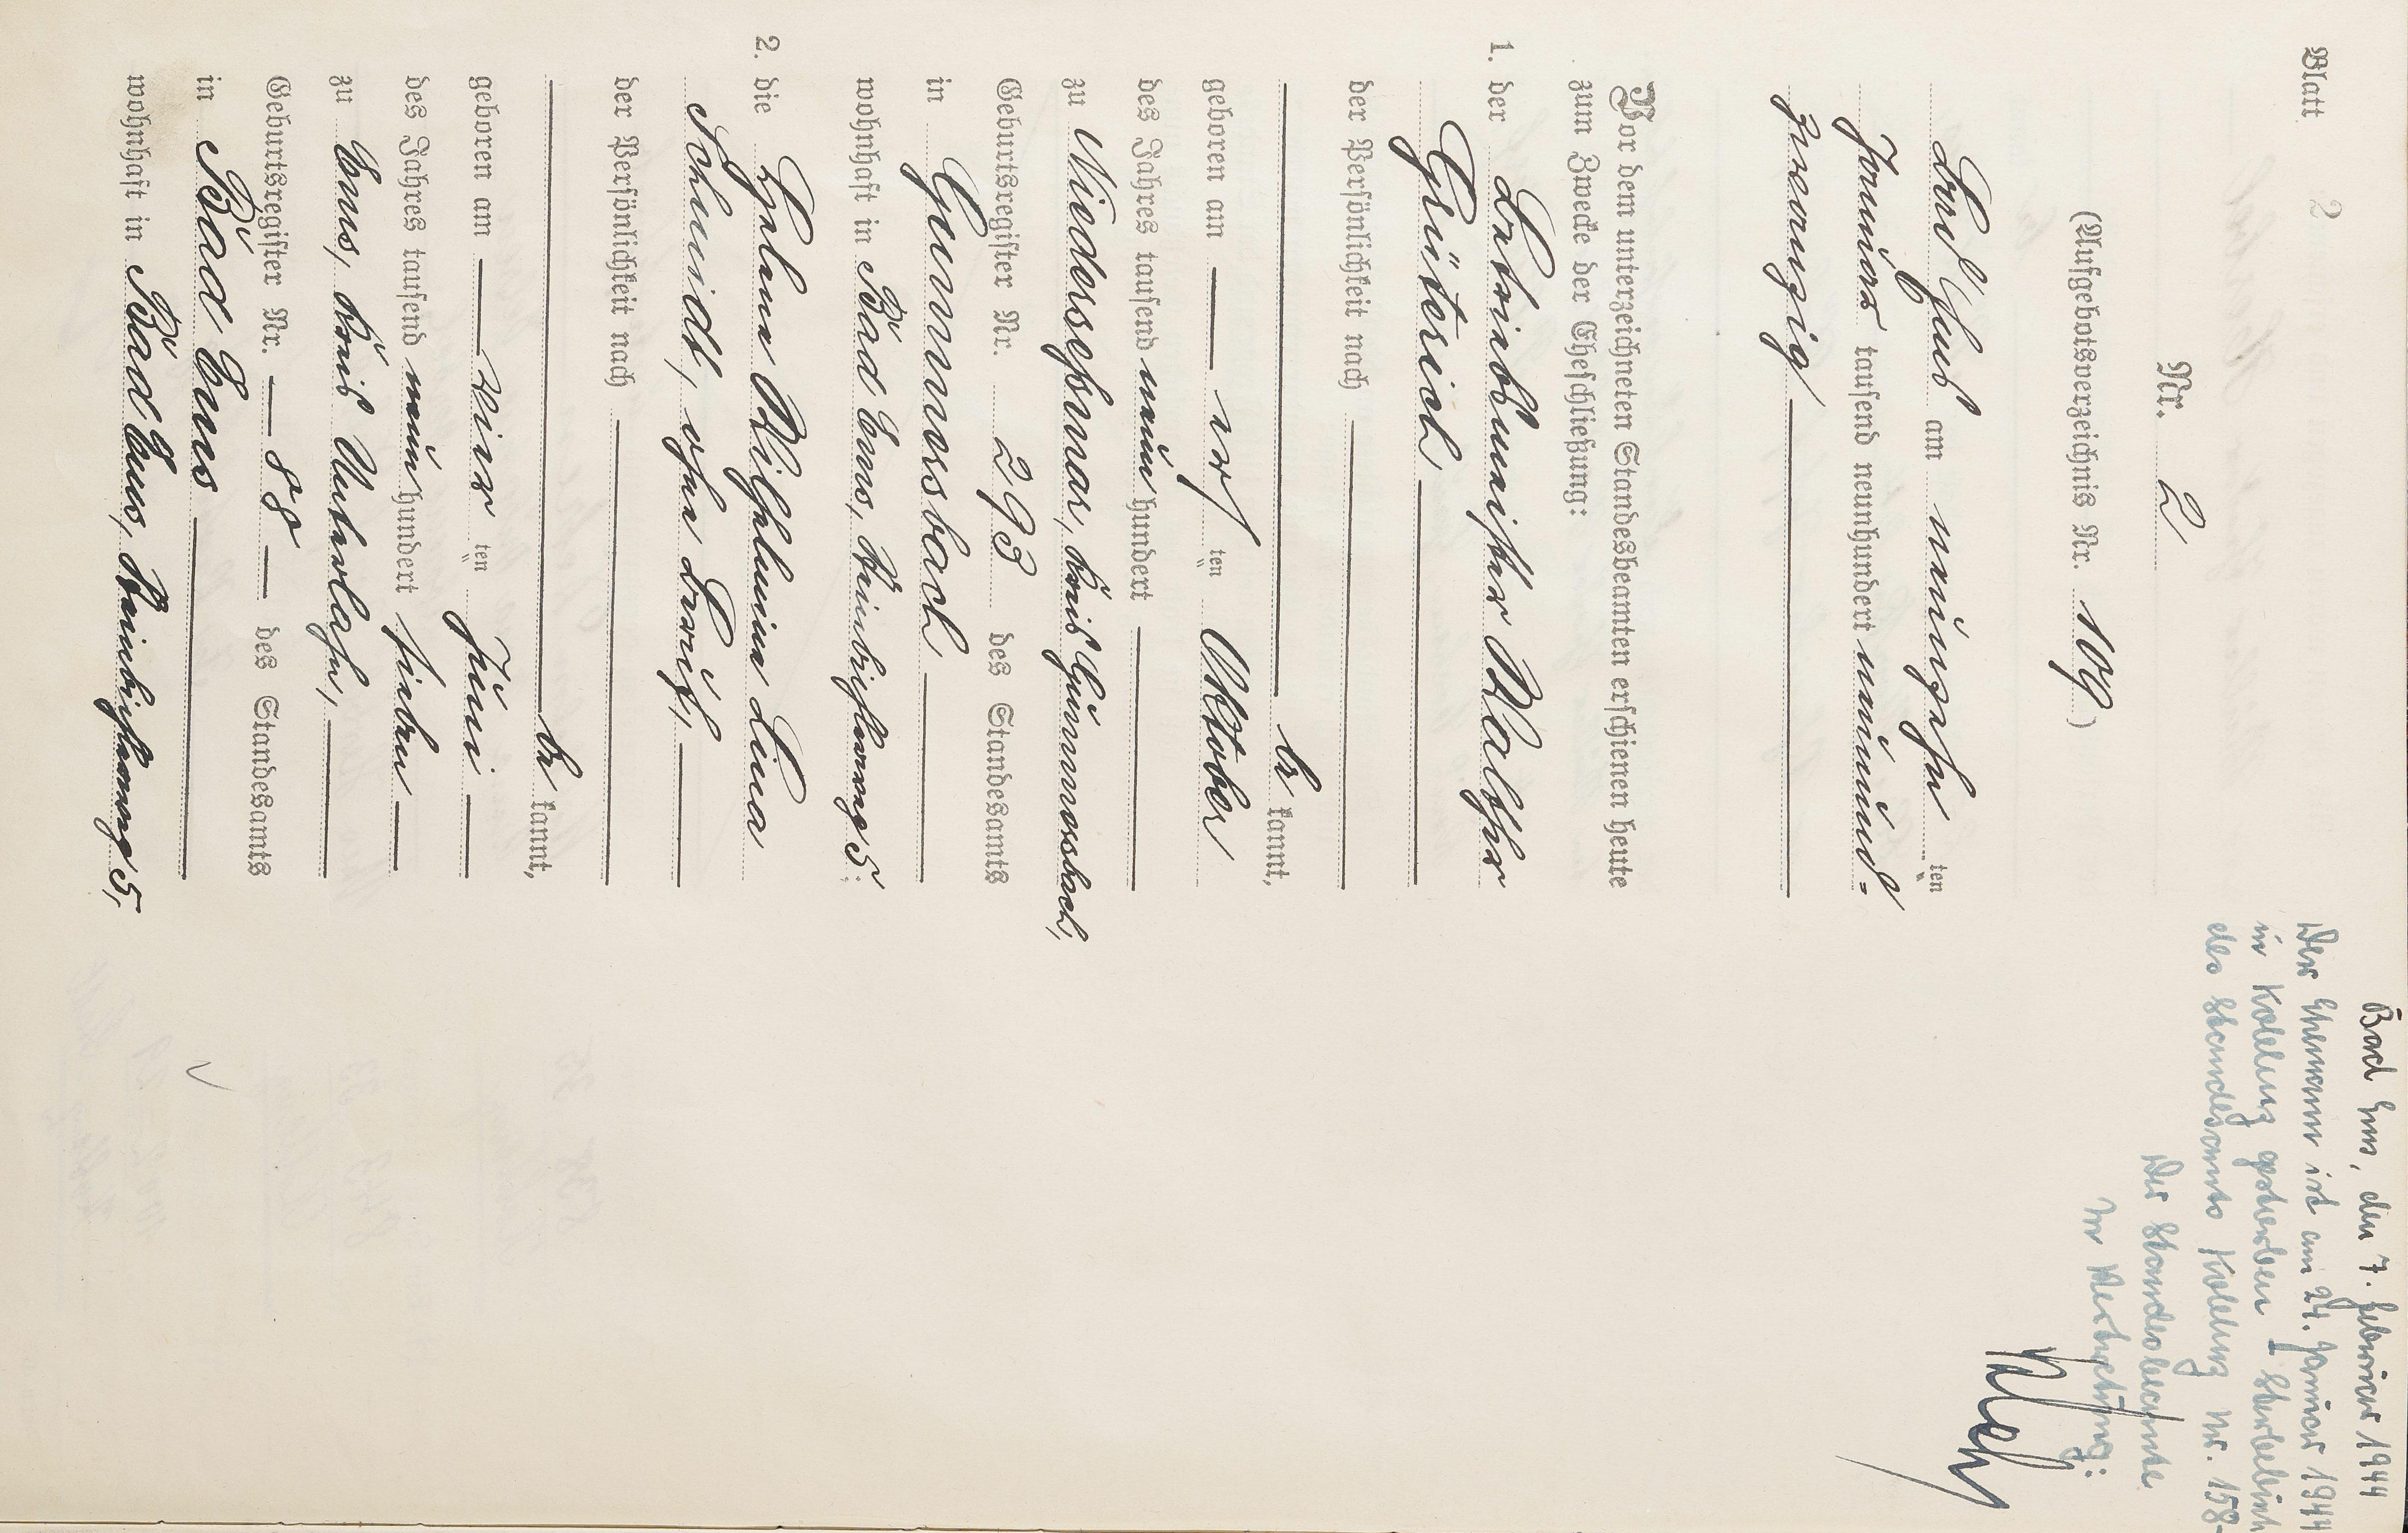 Blatt 2
Nr. 2
(Aufgebotsverzeichnis Nr. 109)
Bad Ems am neunzehn ten
Januar tausend neunhundert neunund-
zwanzig
Vor dem unterzeichneten Standesbeamten erschienen heute
zum Zwecke der Eheschließung:
1. der Betriebsmeister Walther
Grüterich
der Persönlichkeit nach
be kannt,
geboren am elf ten Oktober
des Jahres tausend neun hundert
zu Niedersessmar, Kreis Gummersbach,
Geburtsregister Nr. 293 des Standesamts
in Gummersbach
wohnhaft in Bad Ems, 5;
2. die Helene Wilhelmine Lina
Schmidt, ohne Beruf,
der Persönlichkeit nach
be kannt,
geboren am vier ten Juni
des Jahres tausend neun hundert sieben
zu Ems, Kreis Unterlahn,
Geburtsregister Nr. 88 des Standesamts
in Bad Ems
wohnhaft in Bad Ems, 5,
Bad Ems, den 7. Februar 1944
Der Ehemann ist am 24. Januar 1944
in Koblenz gestorben – Sterbebuch
des Standesamts Koblenz Nr. 158-
Der Standesbeamte
In Vertretung: